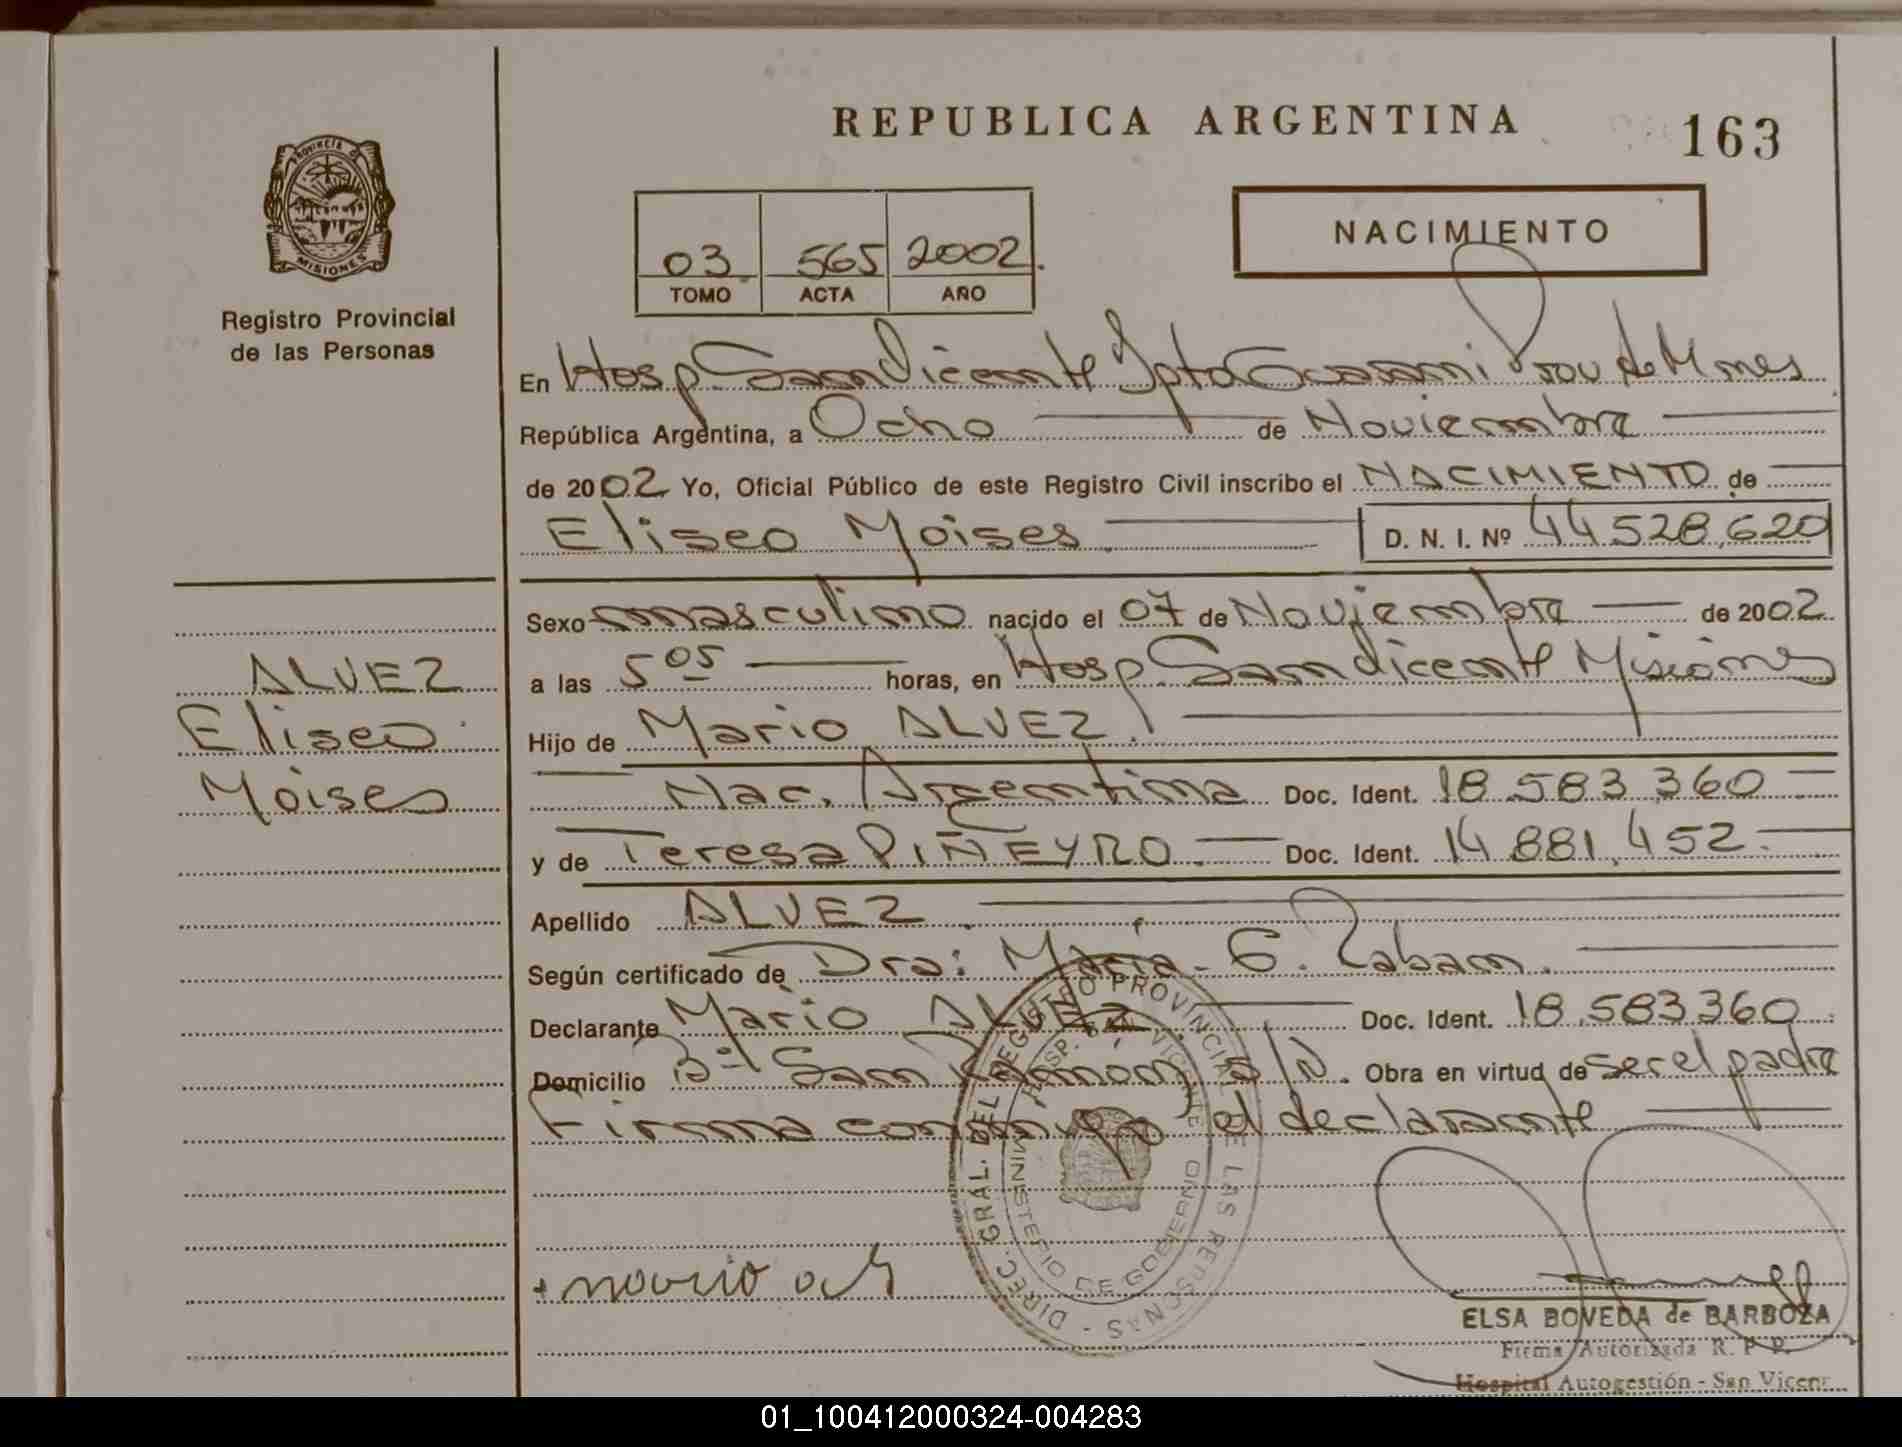 REPUBLICA ARGENTINA
163
PROVINCIA D
MISIONES
Registro Provincial
de las Personas
03 565 2002
TOMO ACTA AÑO
NACIMIENTO
En Hosp San Vicente Dpto Guarani Prov de Mnes
República Argentina, a Ocho de Noviembre
de 2002 Yo, Oficial Público de este Registro Civil inscribo el NACIMIENTO de
Eliseo Moises D. N. I. Nº 44.528.620
Sexo masculino nacido el 07 de Noviembre de 2002
a las 5 05 horas, en Hosp. San Vicente Misiones
Hijo de Mario ALVEZ
Nac. Argentina Doc. Ident. 18.583.360
y de Teresa PIÑEYRO Doc. Ident. 14.881.452
Apellido ALVEZ
Según certificado de Dra: Maria G.
Declarante Mario ALVEZ Doc. Ident. 18.583.360
Domicilio Bº San Ramón S/N. Obra en virtud de ser el padre
Firma conmigo el declarante
ALVEZ
Eliseo
Moises
DIREC. GRAL. DEL REGISTRO PROVINCIAL DE LAS PERSONAS
HOSP. SAN VICENTE
MINISTERIO DE GOBIERNO
ELSA BOVEDA de BARBOZA
Firma Autorizada R. P. P.
Hospital Autogestión - San Vicente
01_100412000324-004283